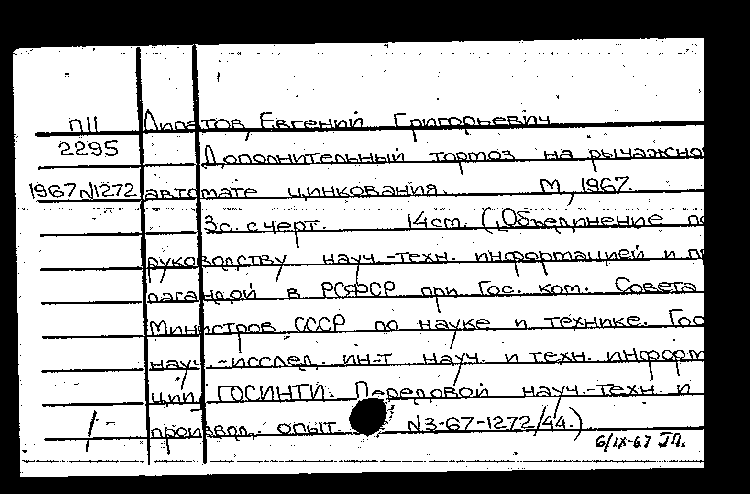 ПII Липатов, Евгений Григорьевич
2295 Дополнительный тормоз на рычажно
1967 N1272 автомате цинкования. М, 1967.
3с. с черт. 14см. (Объединение по
руководству науч.-техн. информацией и пр
пагандой в РСФСР при Гос. ком. Совета
Министров СССР по науке и технике. Гос
науч.-исслед. ин-т науч. и техн. информ
ции ГОСИНТИ. Передовой науч.-техн и
производ. опыт N3-67-1272/44.)
6/IX-67